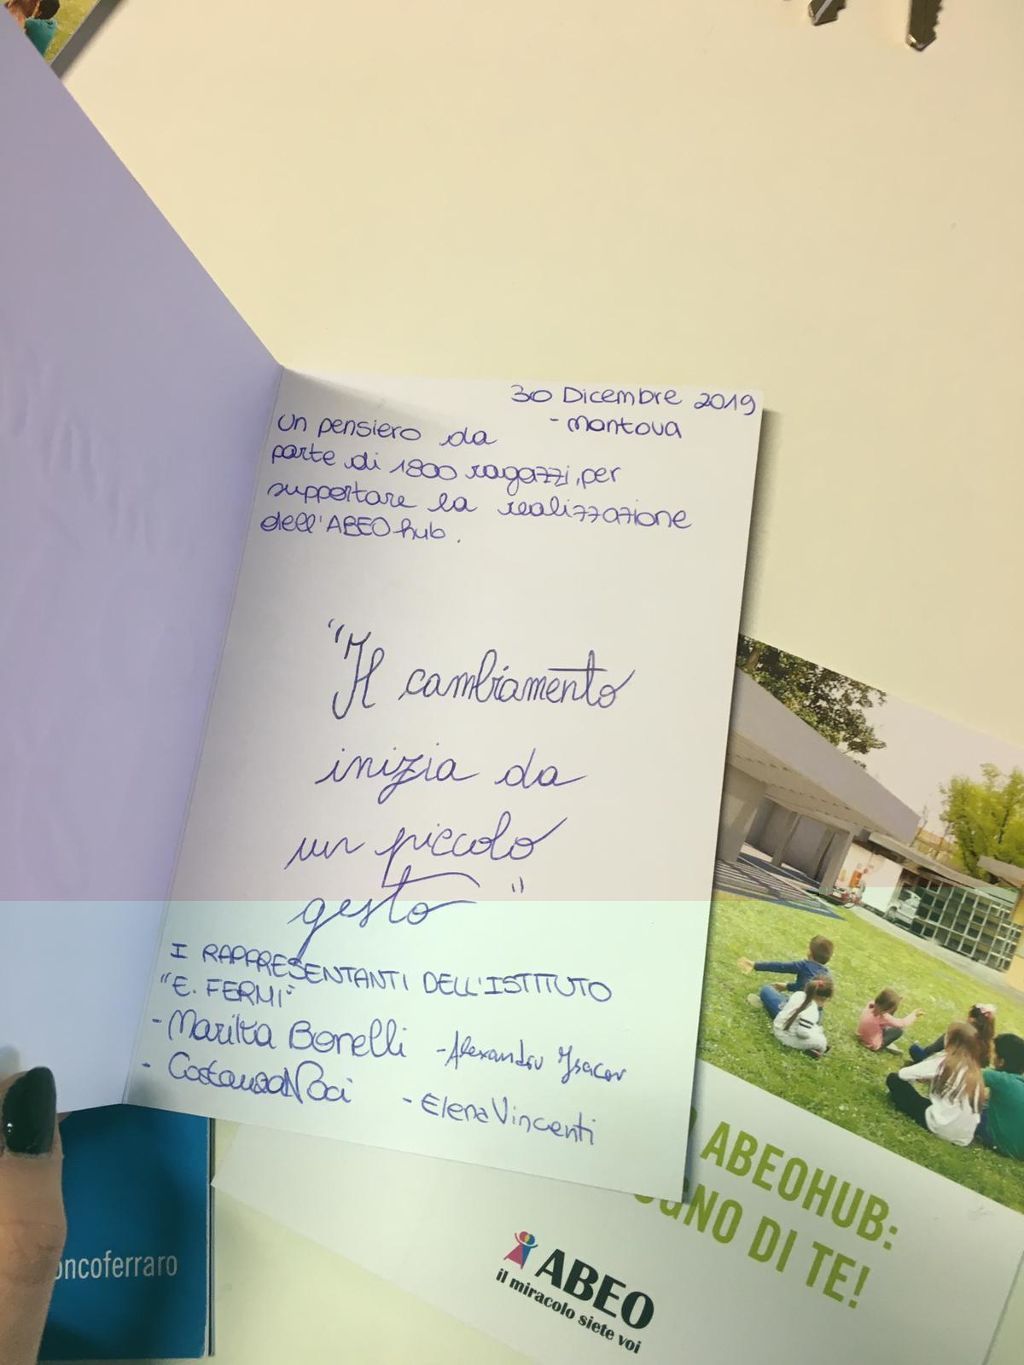 30 Dicembre 2019
- Mantova
Un pensiero da
parte di 1800 ragazzi, per
supportare la realizzazione
dell'ABEO hub.
"Il cambiamento
inizia da
un piccolo
gesto"
I RAPPRESENTANTI DELL'ISTITUTO
"E. FERMI"
- Marilta Bonelli - Alexandru Ysacov
- Costanza Noci - Elena Vincenti
ABEOHUB:
OGNO DI TE!
ABEO
il miracolo siete voi
oncoferraro